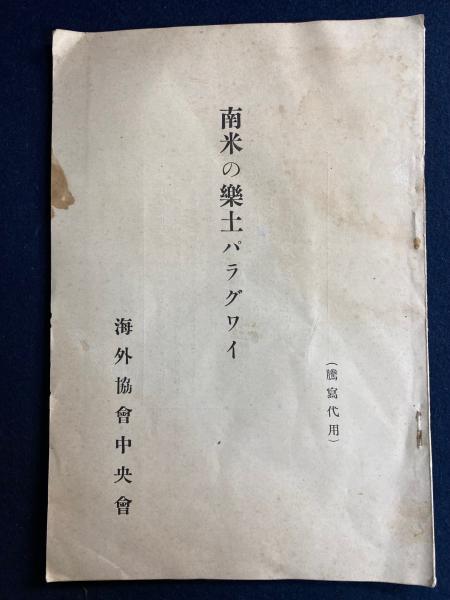 （謄寫代用）
南米の樂土パラグワイ
海外協會中央會